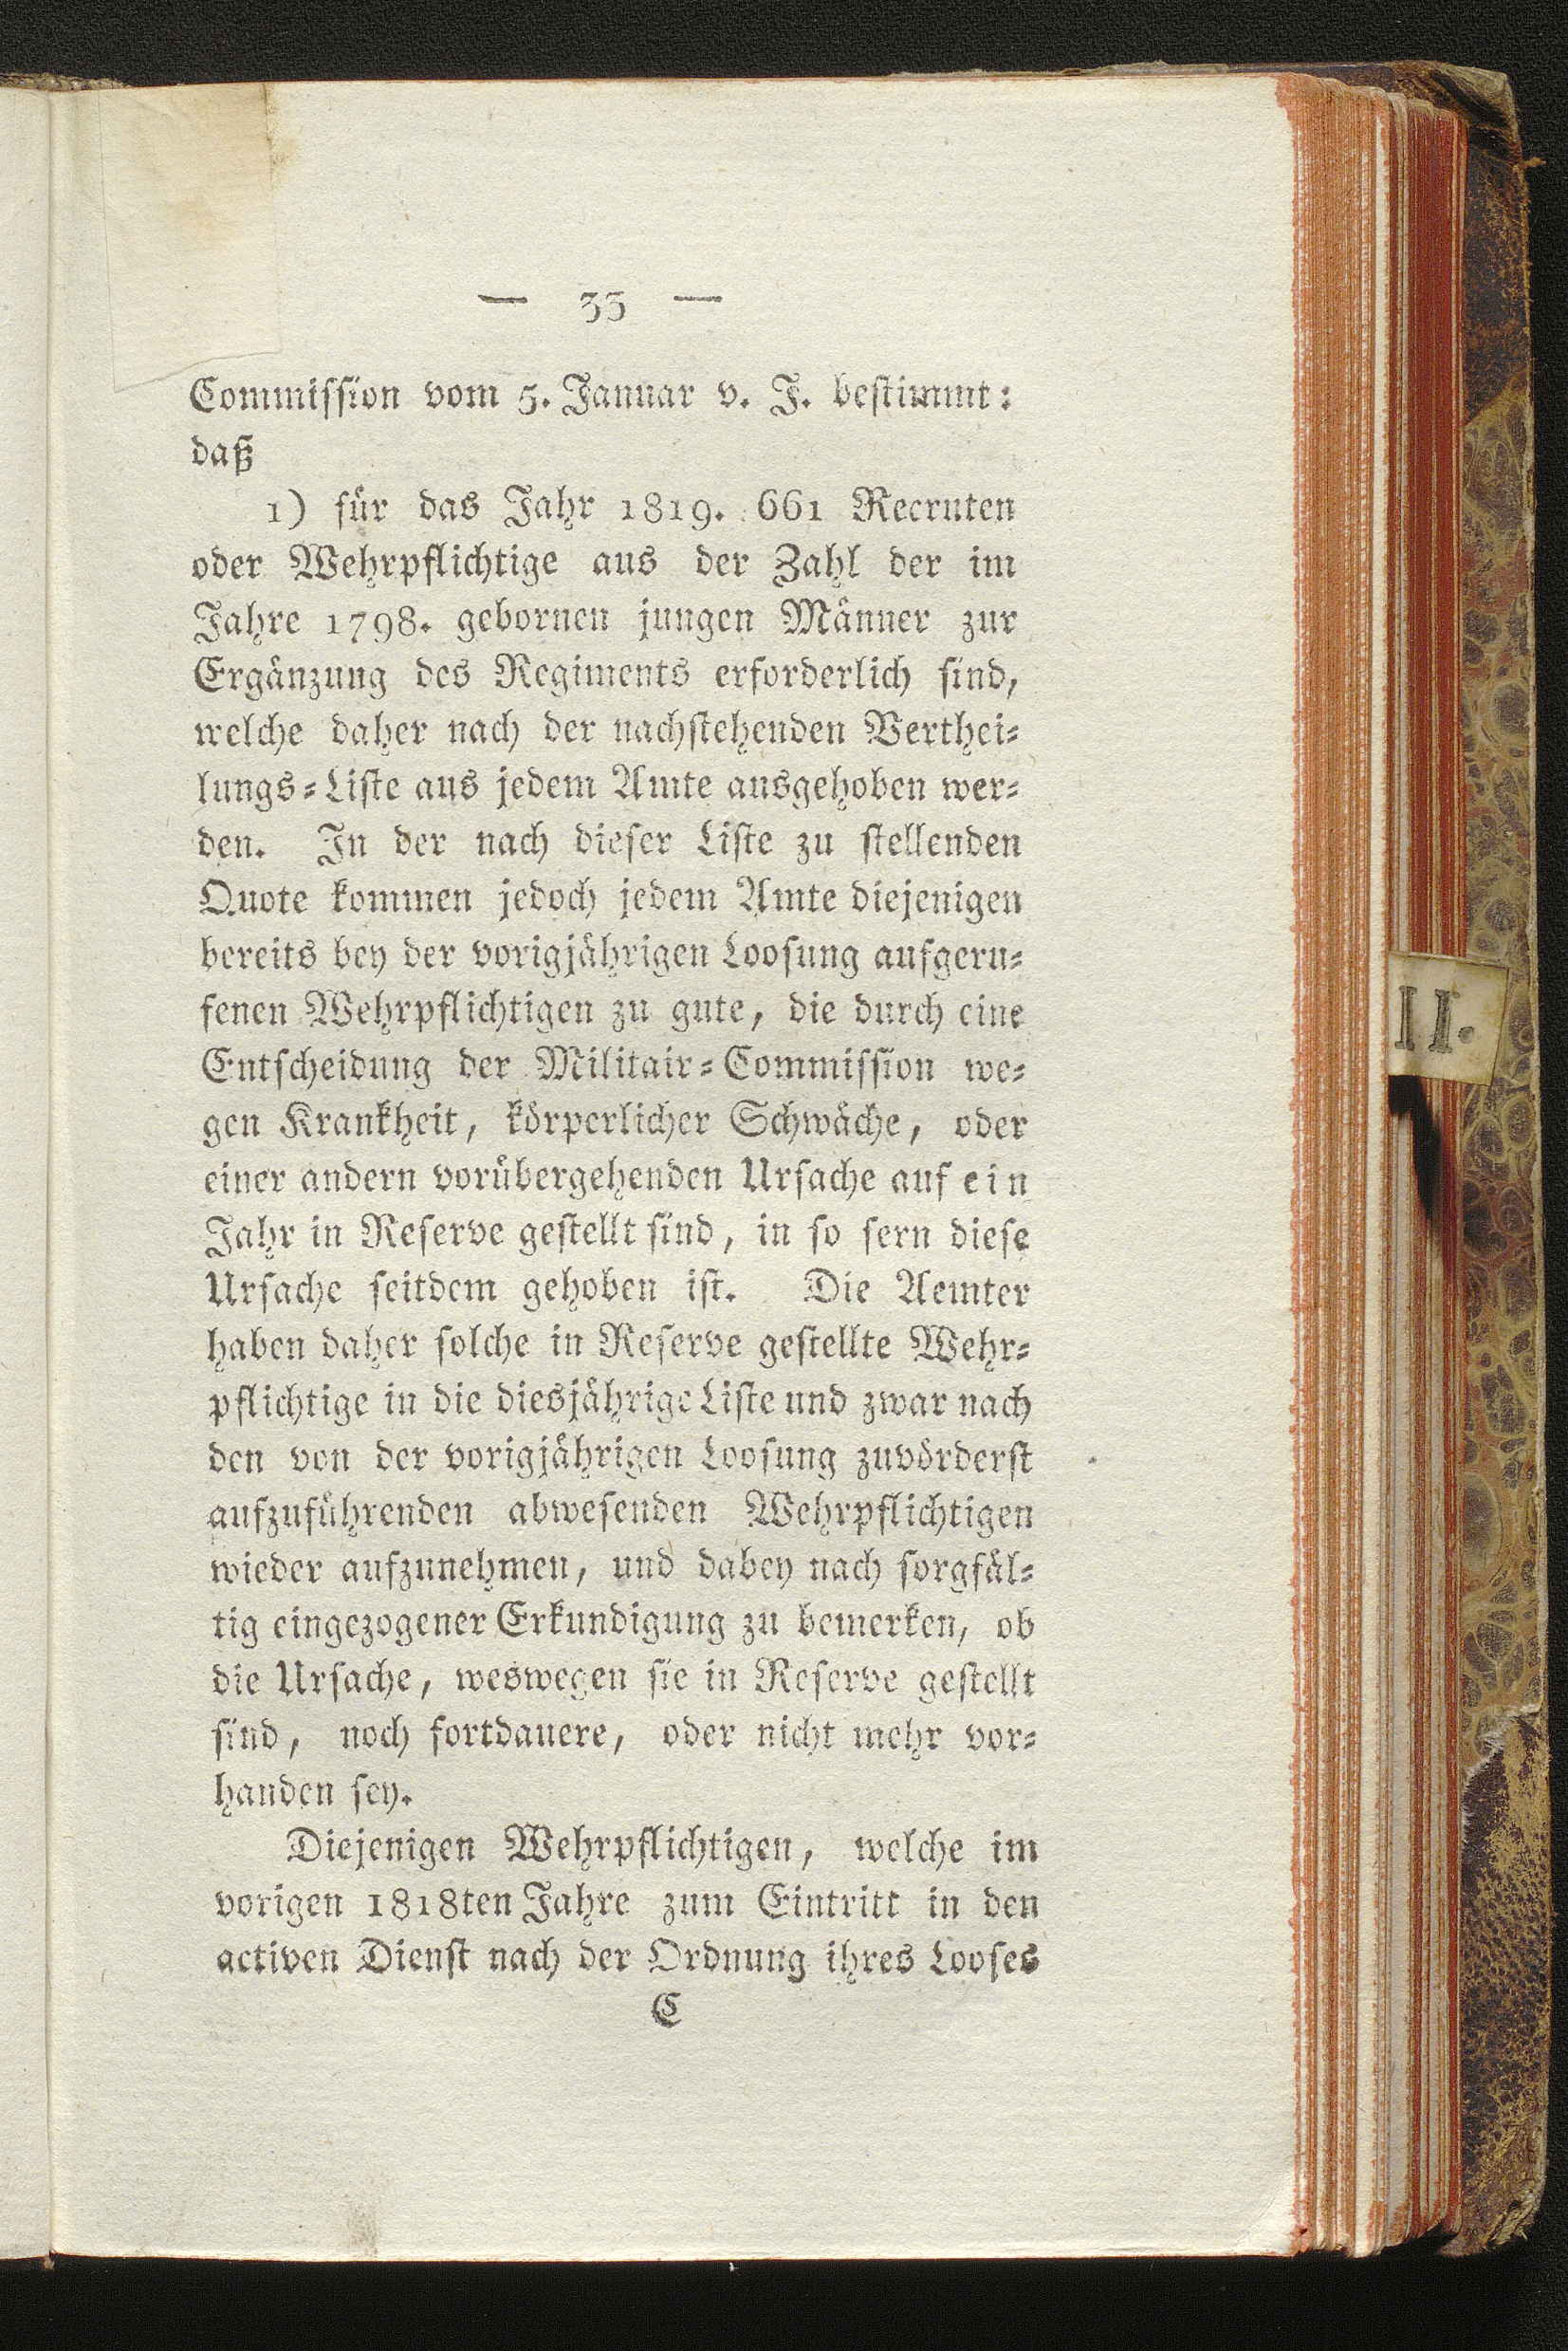 — 33 —
Commission vom 5. Januar v. J. bestimmt:
daß
1) für das Jahr 1819. 661 Recruten
oder Wehrpflichtige aus der Zahl der im
Jahre 1798. gebornen jungen Männer zur
Ergänzung des Regiments erforderlich sind,
welche daher nach der nachstehenden Verthei-
lungs-Liste aus jedem Amte ausgehoben wer-
den. In der nach dieser Liste zu stellenden
Quote kommen jedoch jedem Amte diejenigen
bereits bey der vorigjährigen Loosung aufgeru-
fenen Wehrpflichtigen zu gute, die durch eine
Entscheidung der Militair-Commission we-
gen Krankheit, körperlicher Schwäche, oder
einer andern vorübergehenden Ursache auf ein
Jahr in Reserve gestellt sind, in so fern diese
Ursache seitdem gehoben ist. Die Aemter
haben daher solche in Reserve gestellte Wehr-
pflichtige in die diesjährige Liste und zwar nach
den von der vorigjährigen Loosung zuvörderst
aufzuführenden abwesenden Wehrpflichtigen
wieder aufzunehmen, und dabey nach sorgfäl-
tig eingezogener Erkundigung zu bemerken, ob
die Ursache, weswegen sie in Reserve gestellt
sind, noch fortdauere, oder nicht mehr vor-
handen sey.
Diejenigen Wehrpflichtigen, welche im
vorigen 1818ten Jahre zum Eintritt in den
activen Dienst nach der Ordnung ihres Looses
C
II.